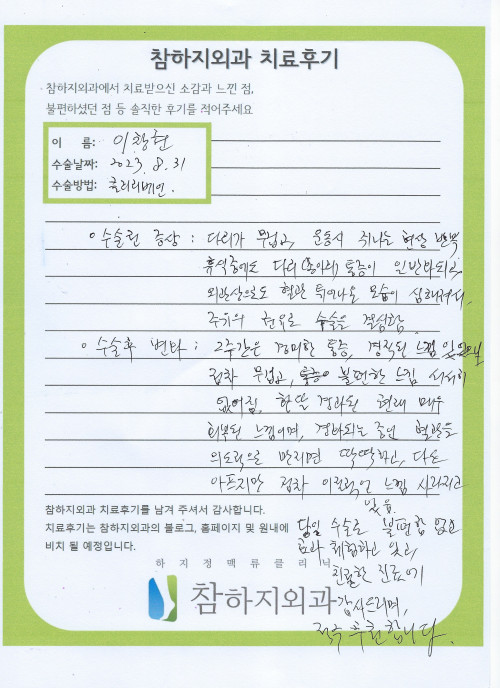 참하지외과 치료후기
참하지외과에서 치료받으신 소감과 느낀 점,
불편하셨던 점 등 솔직한 후기를 적어주세요
이 름: 이창현
수술날짜: 2023. 8. 31
수술방법: 클라리베인.
◦수술전 증상 : 다리가 무겁고, 운동시 쥐나는 현상 반복
휴식중에도 다리(종아리) 통증이 인반되고
외관상으로도 혈관 튀어나온 모습이 심해져서,
주위의 권유로 수술을 결심함.
◦수술후 변화 : 2주간은 경미한 통증, 경직된 느낌 있었으나
점차 무겁고, 불편한 느낌 서서히
없어짐. 한달 경과된 현재 매우
회복된 느낌이며, 경화되는 중인 혈관을
의도적으로 만지면 딱딱하고, 다소
아프지만 점차 이질적인 느낌 사라지고
있음.
당일 수술로 불편함 없는
효과 체험하고 있고,
친절한 진료에
감사드리며,
적극 추천합니다.
참하지외과 치료후기를 남겨 주셔서 감사합니다.
치료후기는 참하지외과의 블로그, 홈페이지 및 원내에
비치 될 예정입니다.
하지정맥류클리닉
참하지외과